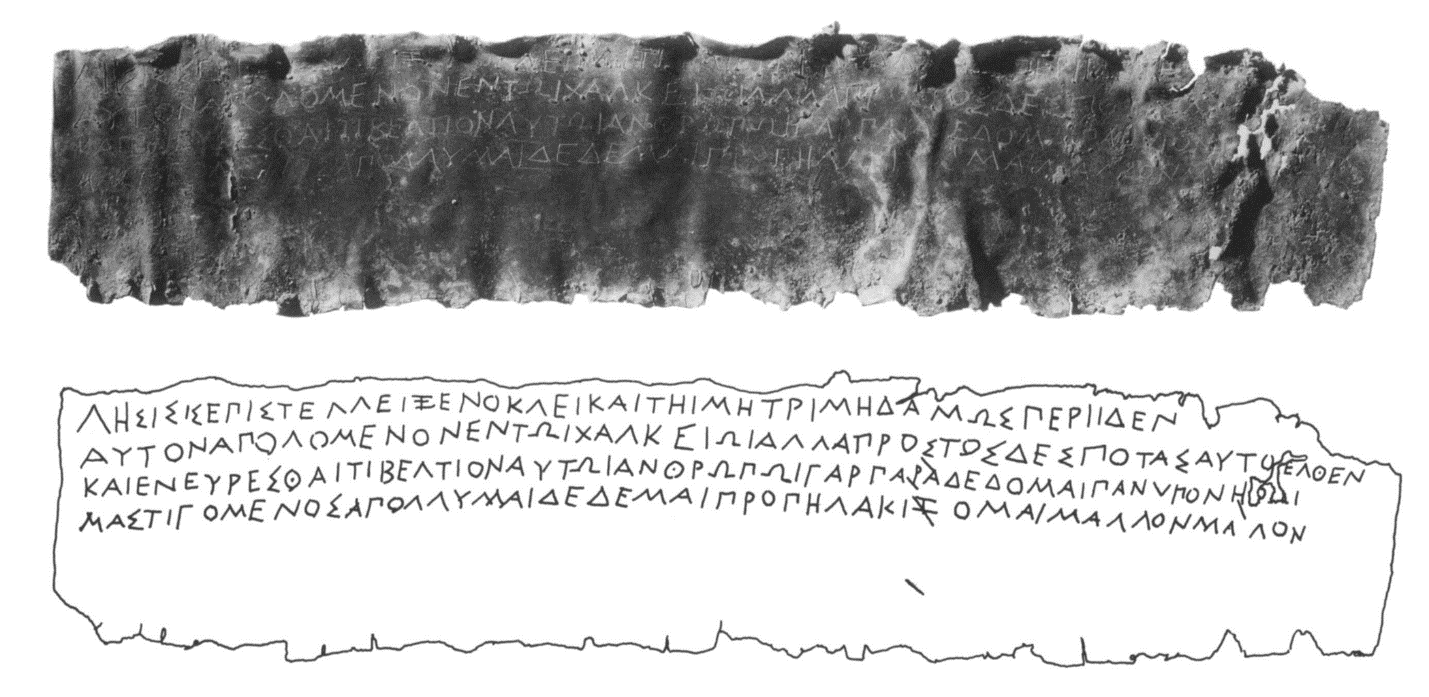 ΛΗΣΙΣΙΣΕΠΙΣΤΕΛΛΕΙΞΕΝΟΚΛΕΙΚΑΙΤΗΙΜΗΤΡΙΜΗΔΑΜΩΣΠΕΡΙΙΔΕΝ
ΑΥΤΟΝΑΠΟΛΟΜΕΝΟΝΕΝΤΩΙΧΑΛΚΕΙΩΙΑΛΛΑΠΡΟΣΤΟΣΔΕΣΠΟΤΑΣΑΥΤΟΕΛΘΕΝ
ΚΑΙΕΝΕΥΡΕΣΘΑΙΤΙΒΕΛΤΙΟΝΑΥΤΩΙΑΝΘΡΩΠΩΙΓΑΡΠΑΡΑΔΕΔΟΜΑΙΠΑΝΥΠΟΝΗΡΩΙ
ΜΑΣΤΙΓΟΜΕΝΟΣΑΠΟΛΛΥΜΑΙΔΕΔΕΜΑΙΠΡΟΠΗΛΑΚΙΞΟΜΑΙΜΑΛΛΟΝΜΑ ΛΟΝ